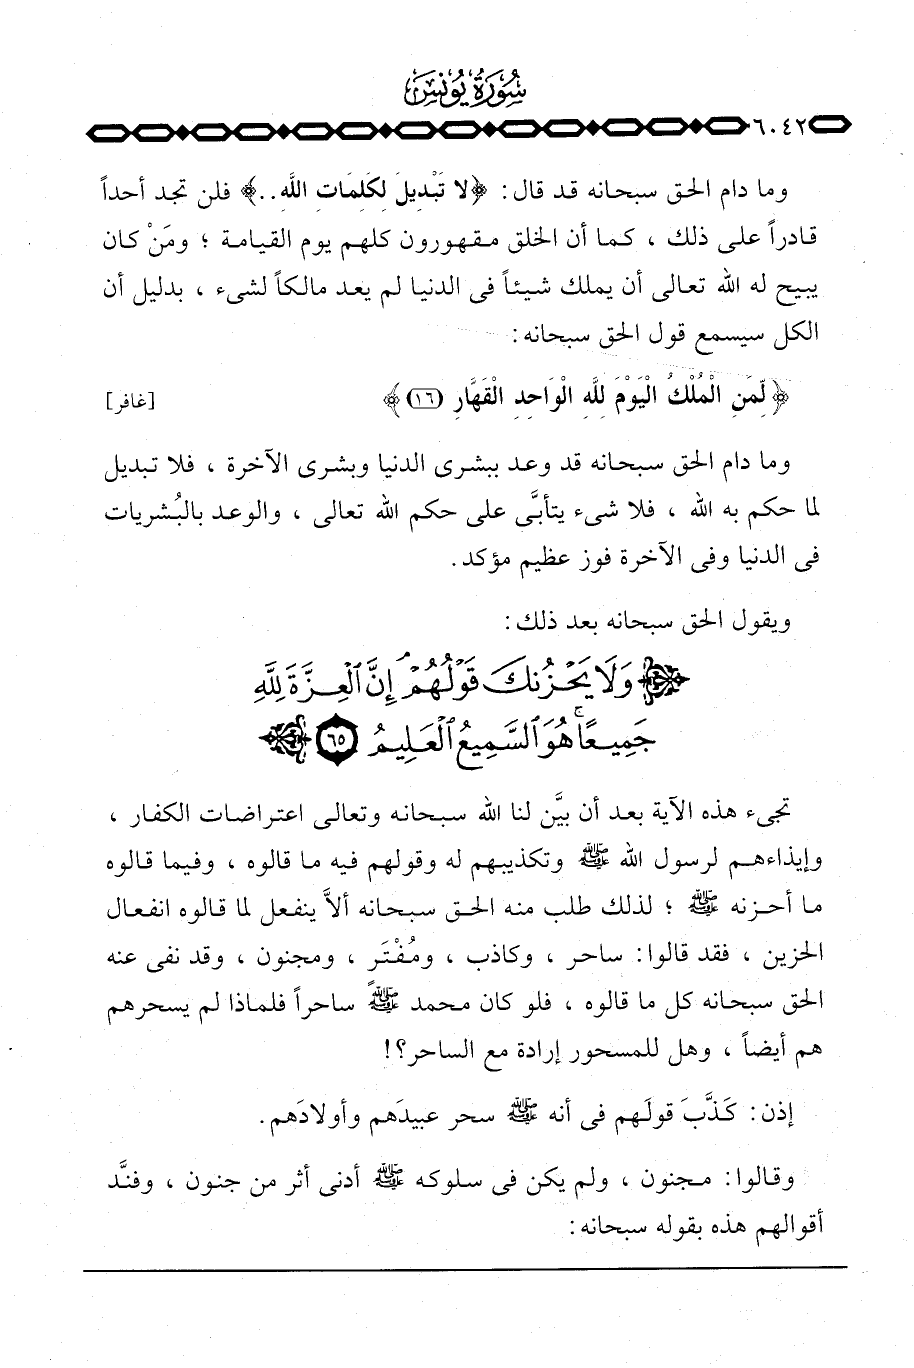 سُورَةُ يُونُسَ
٦٠٤٢
وما دام الحق سبحانه قد قال: ﴿لا تَبْدِيلَ لِكَلِمَاتِ اللَّهِ..﴾ فلن تجد أحداً
قادراً على ذلك ، كما أن الخلق مقهورون كلهم يوم القيامة ؛ ومَنْ كان
يبيح له الله تعالى أن يملك شيئاً فى الدنيا لم يعد مالكاً لشىء ، بدليل أن
الكل سيسمع قول الحق سبحانه:
﴿لِّمَنِ الْمُلْكُ الْيَوْمَ لِلَّهِ الْوَاحِدِ الْقَهَّارِ (١٦)﴾ [غافر]
وما دام الحق سبحانه قد وعد ببشرى الدنيا وبشرى الآخرة ، فلا تبديل
لما حكم به الله ، فلا شىء يتأبَّى على حكم الله تعالى ، والوعد بالبُشريات
فى الدنيا وفى الآخرة فوز عظيم مؤكد.
ويقول الحق سبحانه بعد ذلك:
﴿وَلَا يَحْزُنكَ قَوْلُهُمْ ۘ إِنَّ ٱلْعِزَّةَ لِلَّهِ
جَمِيعًا ۚ هُوَ ٱلسَّمِيعُ ٱلْعَلِيمُ ٦٥﴾
تجىء هذه الآية بعد أن بيَّن لنا الله سبحانه وتعالى اعتراضات الكفار ،
وإيذاءهم لرسول الله ﷺ وتكذيبهم له وقولهم فيه ما قالوه ، وفيما قالوه
ما أحزنه ﷺ ؛ لذلك طلب منه الحق سبحانه ألاَّ ينفعل لما قالوه انفعال
الحزين ، فقد قالوا: ساحر ، وكاذب ، ومُفْتَرٍ ، ومجنون ، وقد نفى عنه
الحق سبحانه كل ما قالوه ، فلو كان محمد ﷺ ساحراً فلماذا لم يسحرهم
هم أيضاً ، وهل للمسحور إرادة مع الساحر؟!
إذن: كَذَّبَ قولَهم فى أنه ﷺ سحر عبيدَهم وأولادَهم.
وقالوا: مجنون ، ولم يكن فى سلوكه ﷺ أدنى أثر من جنون ، وفنَّد
أقوالهم هذه بقوله سبحانه: